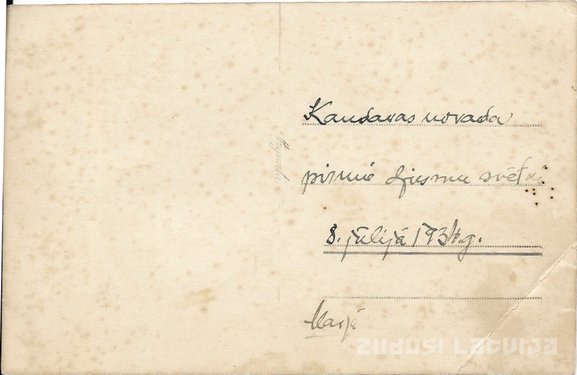 Kandavas novada
pirmie dziesmu svētki
8. jūlijā 1934. g.
ZUDUSĪ LATVIJA